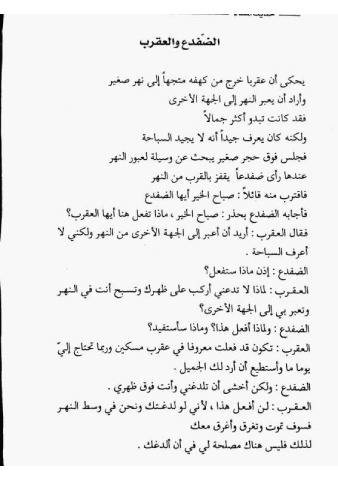 الضفدع والعقرب
يحكى أن عقربا خرج من كهفه متجهاً إلى نهر صغير
وأراد أن يعبر النهر إلى الجهة الأخرى
فقد كانت تبدو أكثر جمالاً
ولكنه كان يعرف جيداً أنه لا يجيد السباحة
فجلس فوق حجر صغير يبحث عن وسيلة لعبور النهر
عندها رأى ضفدعاً يقفز بالقرب من النهر
فاقترب منه قائلاً : صباح الخير أيها الضفدع
فأجابه الضفدع بحذر : صباح الخير ، ماذا تفعل هنا أيها العقرب؟
فقال العقرب : أريد أن أعبر إلى الجهة الأخرى من النهر ولكني لا
أعرف السباحة .
الضفدع : إذن ماذا ستفعل؟
العقرب : لماذا لا تدعني أركب على ظهرك وتسبح أنت في النهر
وتعبر بي إلى الجهة الأخرى؟
الضفدع : ولماذا أفعل هذا؟ وماذا سأستفيد؟
العقرب : تكون قد فعلت معروفا في عقرب مسكين وربما تحتاج إليّ
يوما ما وأستطيع أن أرد لك الجميل .
الضفدع : ولكن أخشى أن تلدغني وأنت فوق ظهري .
العقرب : لن أفعل هذا ، لأني لو لدغتك ونحن في وسط النهر
فسوف تموت وتغرق وأغرق معك
لذلك فليس هناك مصلحة لي في أن ألدغك .